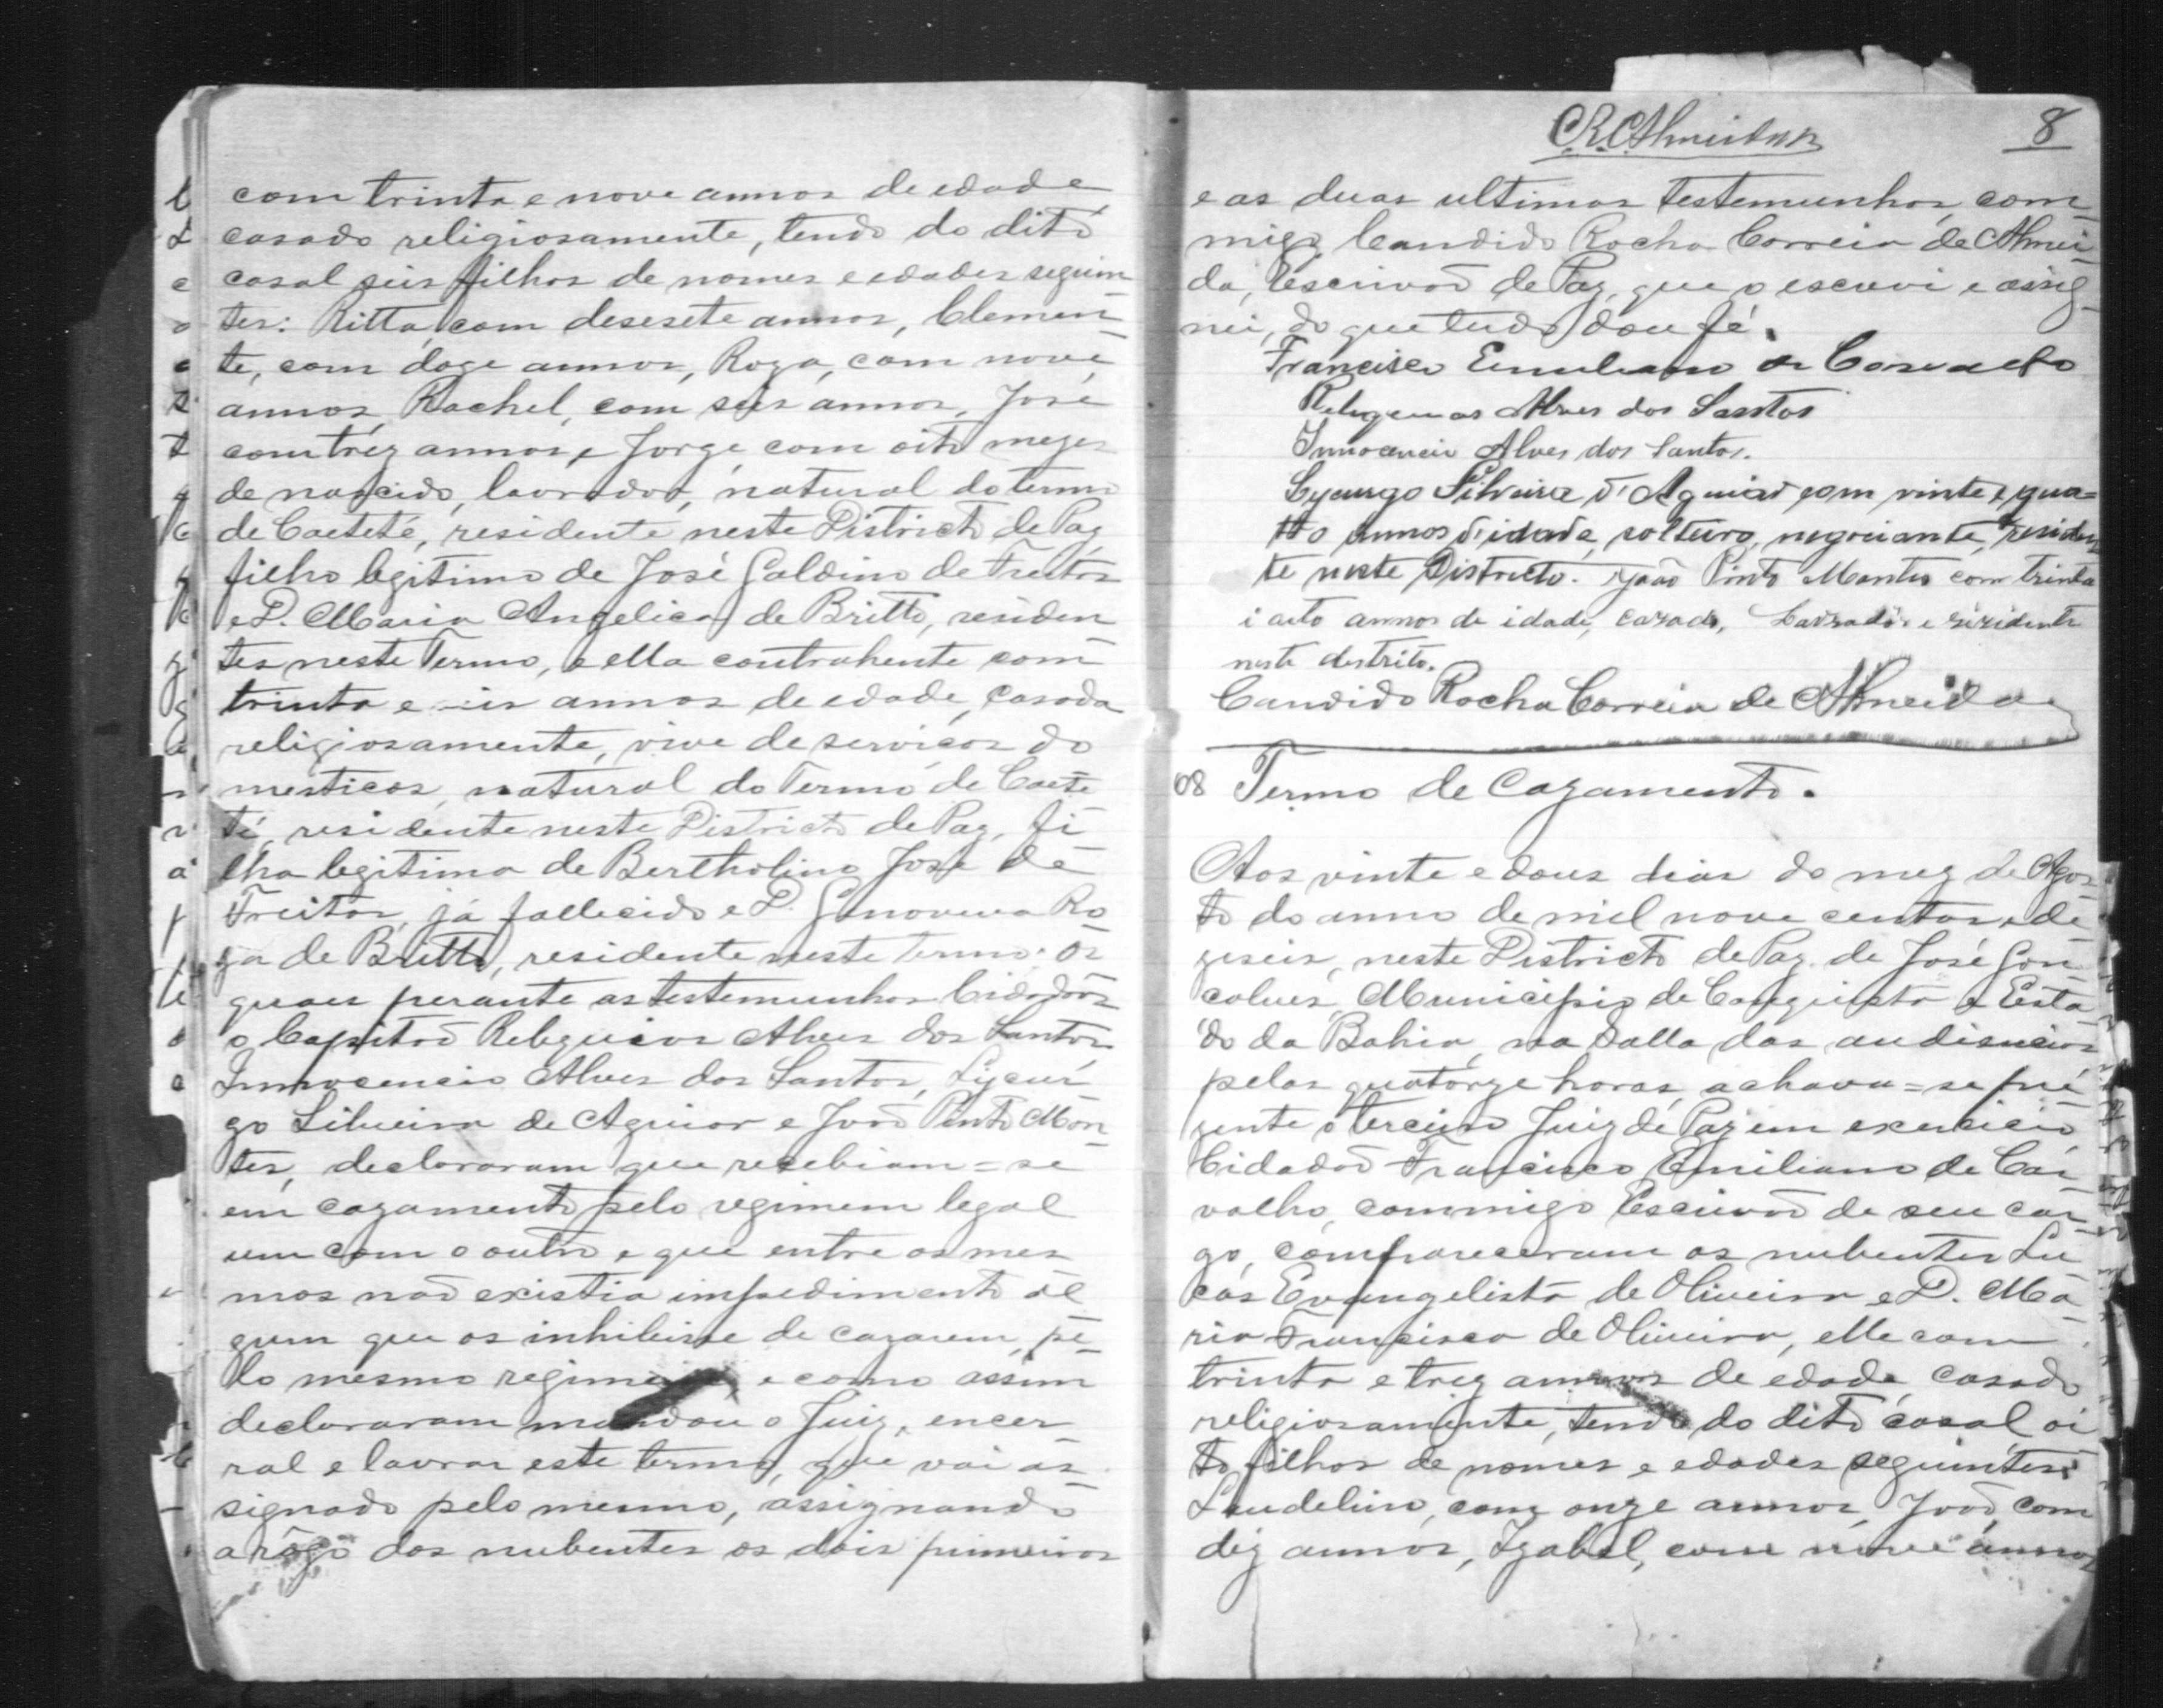 com trinta e nove annos de edade,
casado religiosamente, tendo do dito
casal seis filhos de nomes e edades seguin-
tes: Ritta, com desesete annos, Clemen-
te, com doze annos, Roza, com nove
annos, Rachel, com seis annos, José
com trez annos, e Jorge com oito mezes
de nascido, lavrador, natural do termo
de Caeteté, residente neste Districto de Paz,
filho legitimo de José Galdino de Freitas
e D. Maria Angelica de Britto, residen-
tes neste Termo, e ella contrahente com
trinta e seis annos de edade, casada
religiosamente, vive de serviços do-
mesticos, natural do Termo de Caete-
té, residente neste Districto de Paz, fi-
lha legitima de Bertholino José de
Freitas, já fallecido e D. Genoveva Ro-
za de Britto, residente neste termo: os
quaes perante as testemunhas Cidadãos
o Capitão Relequias Alves dos Santos,
Innocencio Alves dos Santos, Lycur-
go Silveira de Aguiar e João Pinto Mon-
tes, declararam que recebiam-se
em cazamento pelo regimem legal
um com o outro e que entre os mes-
mos não existia impedimento al-
gum que os inhibisse de cazarem, pe-
lo mesmo regimem, e como assim
declararam mandou o Juiz, encer-
ral e lavrar este termo, que vai as-
signado pelo mesmo, assignando
a rôgo dos nubentes os dois primeiros
CRCAlmeida 8
e as duas ultimas testemunhas, com-
migo Candido Rocha Correia de Almei-
da, Escrivão de Paz, que o escrevi e assig-
nei, do que tudo dou fé.
Francisco Emiliano de Carvalho
Relequias Alves dos Santos
Innocencio Alves dos Santos.
Lycurgo Silveira d'Aguiar com vinte e qua=
tro annos d'idade, solteiro, negociante, residen
te neste Districto. João Pinto Montes com trinta
i oito annos de idade, cazado, Lavrador e rizidente
neste destrito.
Candido Rocha Correia de Almeida
08 Termo de Cazamento.
Aos vinte e dous dias do mez de Agos-
to do anno de mil nove centos e de-
zeseis, neste Districto de Paz de José Gon-
calves, Municipio de Conquista e Esta-
do da Bahia, na Salla das audiencias
pelas quatorze horas, achava=se pre-
zente o terceiro Juiz de Paz em exercicio
Cidadão Francisco Emiliano de Car-
valho, commigo Escrivão de seu car-
go, compareceram os nubentes Lu-
cas Evangelista de Oliveira e D. Ma-
ria Francisca de Oliveira, elle com
trinta e trez annos de edade, casado
religiosamente, tendo do dito casal oi-
to filhos de nomes e edades seguintes:
Laudelino, com onze annos, João, com
dez annos, Izabel, com nove annos